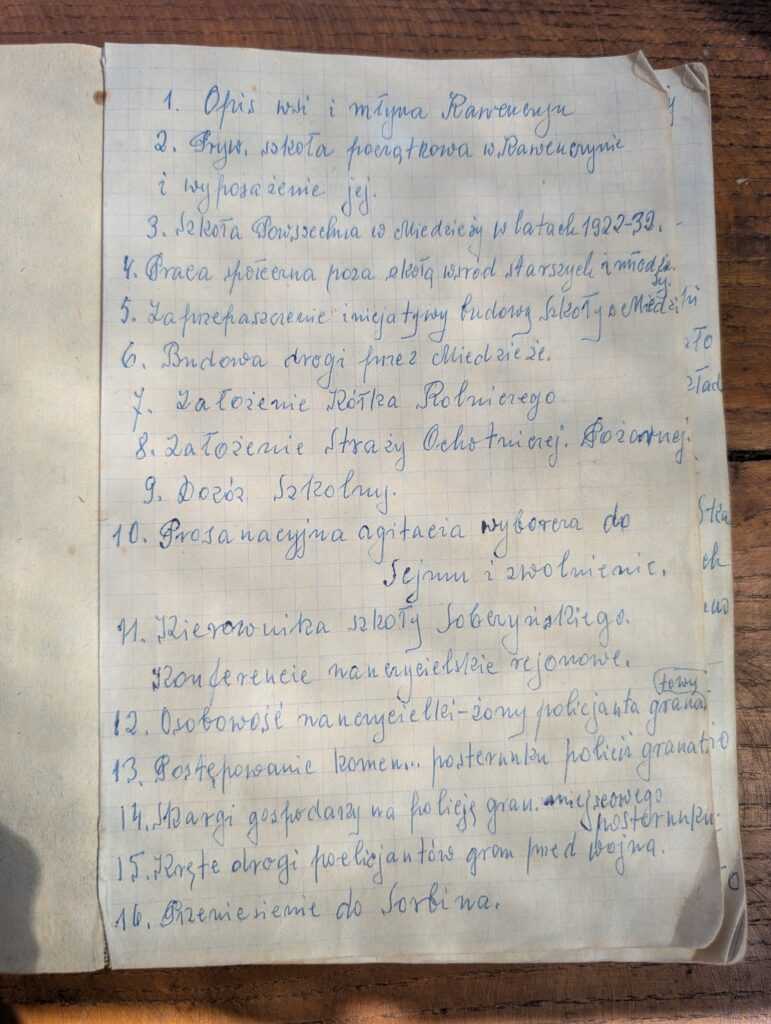 1. Opis wsi i młyna Rawenczyn
2. Pryw. szkoła początkowa w Rawenczynie
i wyposażenie jej.
3. Szkoła Powszechna w Miedzieży w latach 1922-32.
4. Praca społeczna poza szkołą wśród starszych i młodzie
ży.
5. Zaprzepaszczenie inicjatywy budowy Szkoły w
6. Budowa drogi przez Miedzieże.
7. Założenie Kółka Rolniczego
8. Założenie Straży Ochotniczej. Pożarnej.
9. Dozór Szkolny.
10. Prosanacyjna agitacia wyborcza do
Sejmu i zwolnienie.
11. Kierownika szkoły Soberyńskiego.
Konferencie nauczycielskie rejonowe.
12. Osobowość nauczycielki-żony policjanta grana
towy
13. Postępowanie komen... posterunku policii granat
14. Skargi gospodaży na policję gran. miejscowego
posterunku.
15. Kręte drogi poelicjantów gran przed wojną.
16. Przeniesienie do Sorbina.